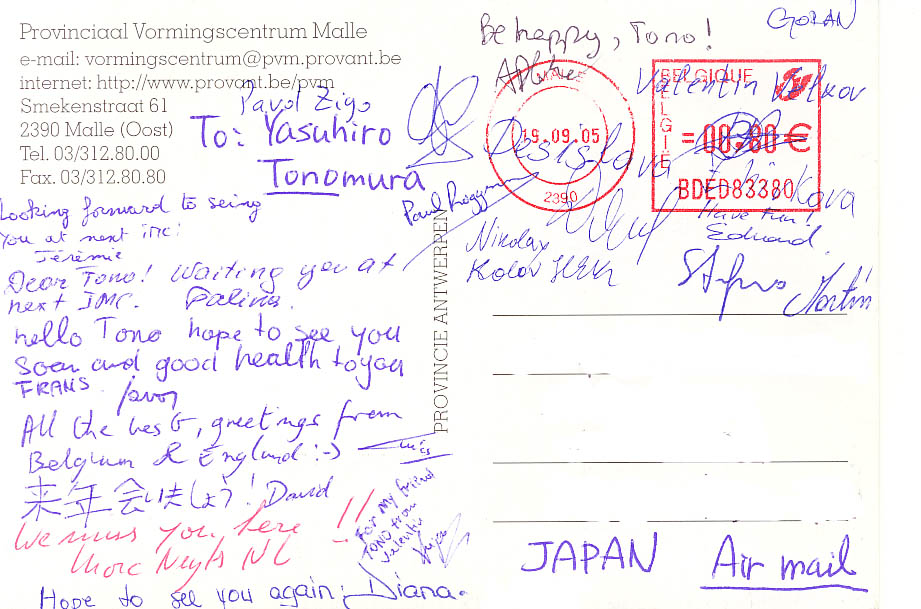 Provinciaal Vormingscentrum Malle
e-mail: vormingscentrum@pvm.provant.be
internet: http://www.provant.be/pvm
Smekenstraat 61
2390 Malle (Oost)
Tel. 03/312.80.00
Fax. 03/312.80.80
Pavol Zigo
To: Yasuhiro
Tonomura
Looking forward to seing
you at next IMC!
Jérémie
Dear Tono! Waiting you at
next IMC. Galina.
hello Tono hope to see you
soon and good health to you
FRANS
All the best, greetings from
Belgium & England :-)
来年会いましょう! David
We miss you here !!
NL
For my friend
TONO from
Valentin
Hope to see you again; Diana.
PROVINCIE ANTWERPEN
Be happy, Tono!
GORAN
MALLE
19.09.05
2390
BELGIQUE
BELGIË
= 00,80 €
BDED83380
Valentin Velkov
Desislava
Paul
Nikolay
Kolev
Have fun!
Eduard
Martin
JAPAN
Air mail